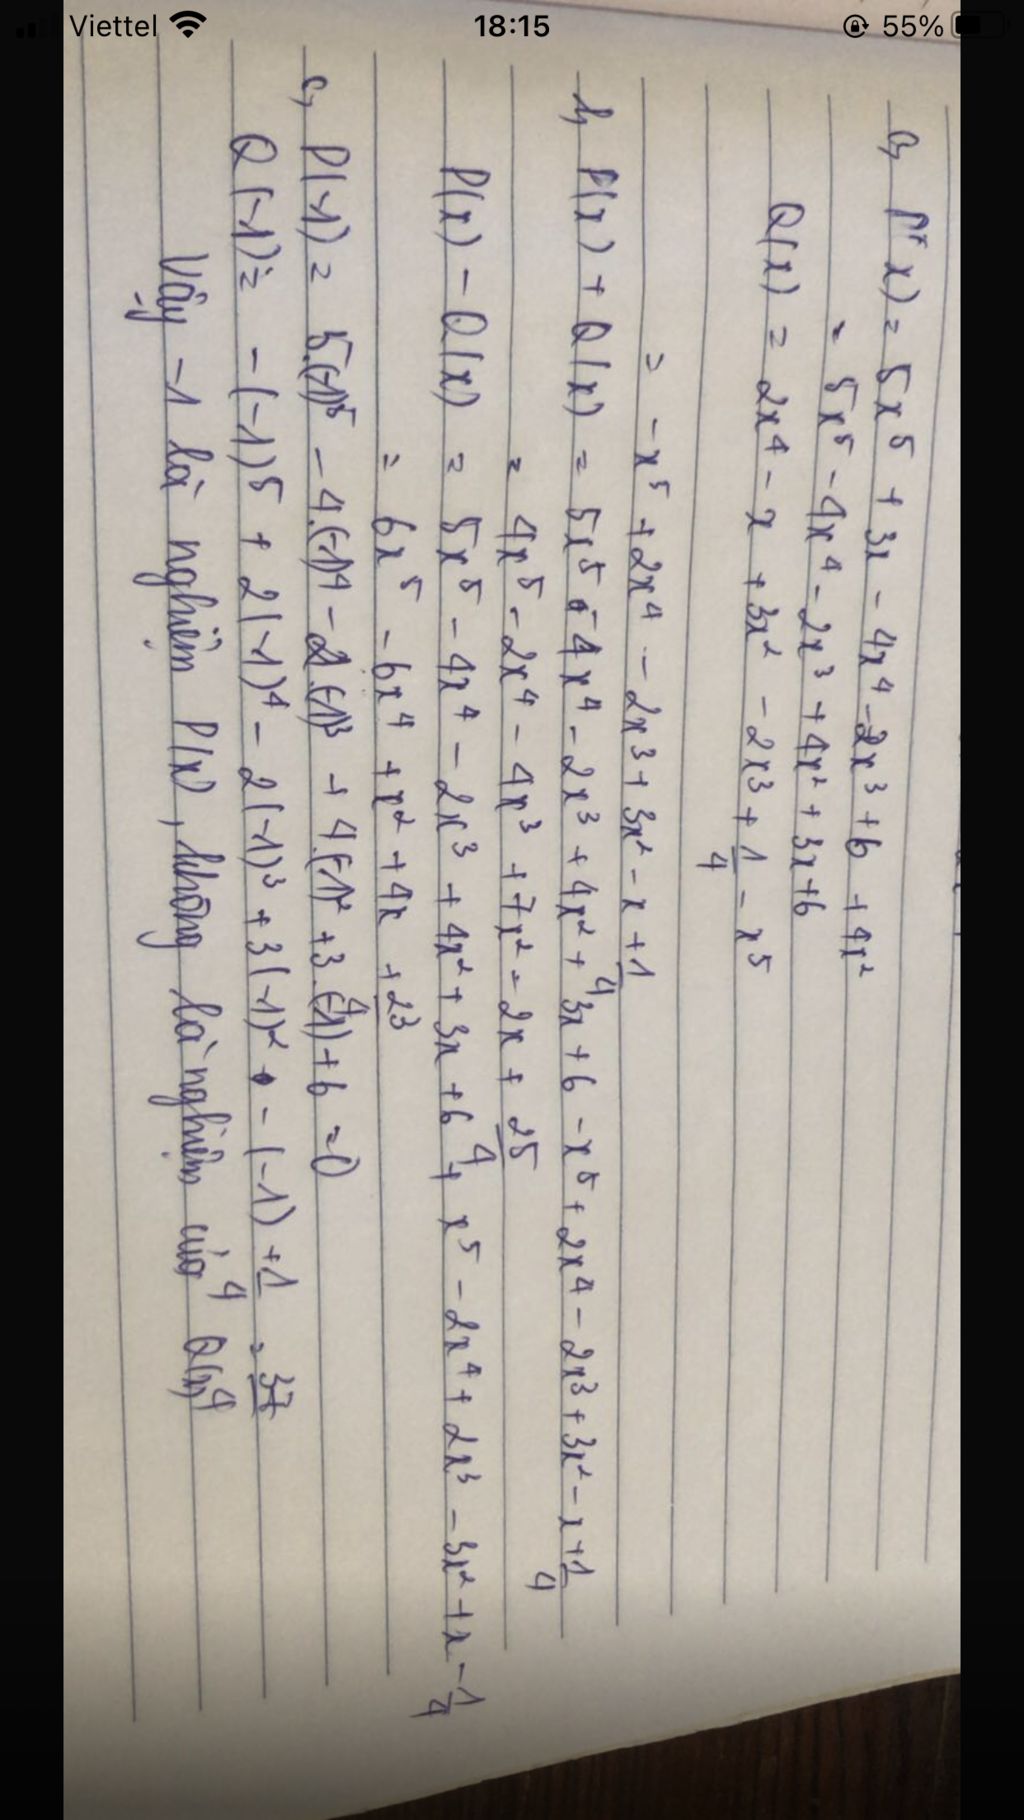 Viettel 18:15 55%
a, P(x) = 5x⁵ + 3x - 4x⁴ - 2x³ + 6 + 4x²
= 5x⁵ - 4x⁴ - 2x³ + 4x² + 3x + 6
Q(x) = 2x⁴ - x + 3x² - 2x³ + 1/4 - x⁵
= -x⁵ + 2x⁴ - 2x³ + 3x² - x + 1/4
b, P(x) + Q(x) = 5x⁵ - 4x⁴ - 2x³ + 4x² + 3x + 6 - x⁵ + 2x⁴ - 2x³ + 3x² - x + 1/4
= 4x⁵ - 2x⁴ - 4x³ + 7x² - 2x + 25/4
P(x) - Q(x) = 5x⁵ - 4x⁴ - 2x³ + 4x² + 3x + 6 + x⁵ - 2x⁴ + 2x³ - 3x² + x - 1/4
= 6x⁵ - 6x⁴ + x² + 4x + 23/4
c, P(-1) = 5.(-1)⁵ - 4.(-1)⁴ - 2.(-1)³ + 4.(-1)² + 3.(-1) + 6 = 0
Q(-1) = -(-1)⁵ + 2(-1)⁴ - 2(-1)³ + 3(-1)² - (-1) + 1/4 = 37/4
Vậy -1 là nghiệm P(x), không là nghiệm của Q(x)